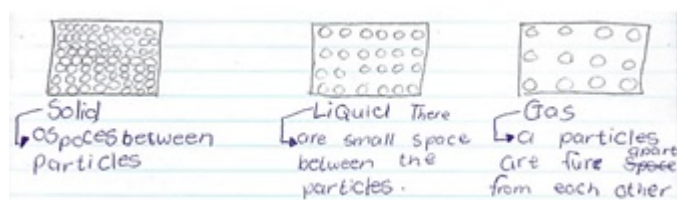 Solid
0 spaces between
particles
Liquid There
are small space
between the
particles.
Gas
a particles
are fure space apart
from each other